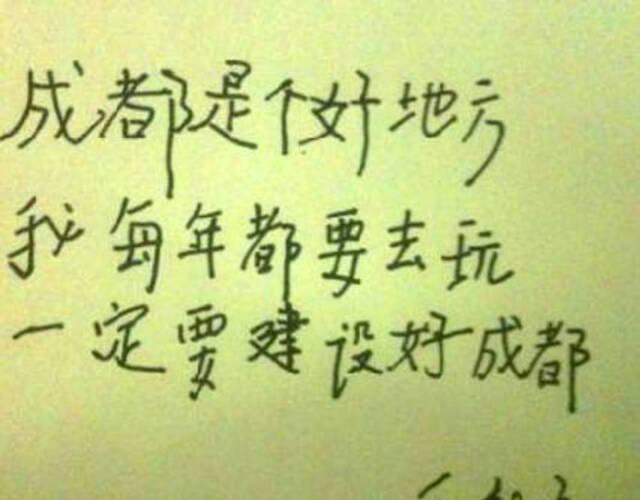 成都是个好地方
我每年都要去玩
一定要建设好成都